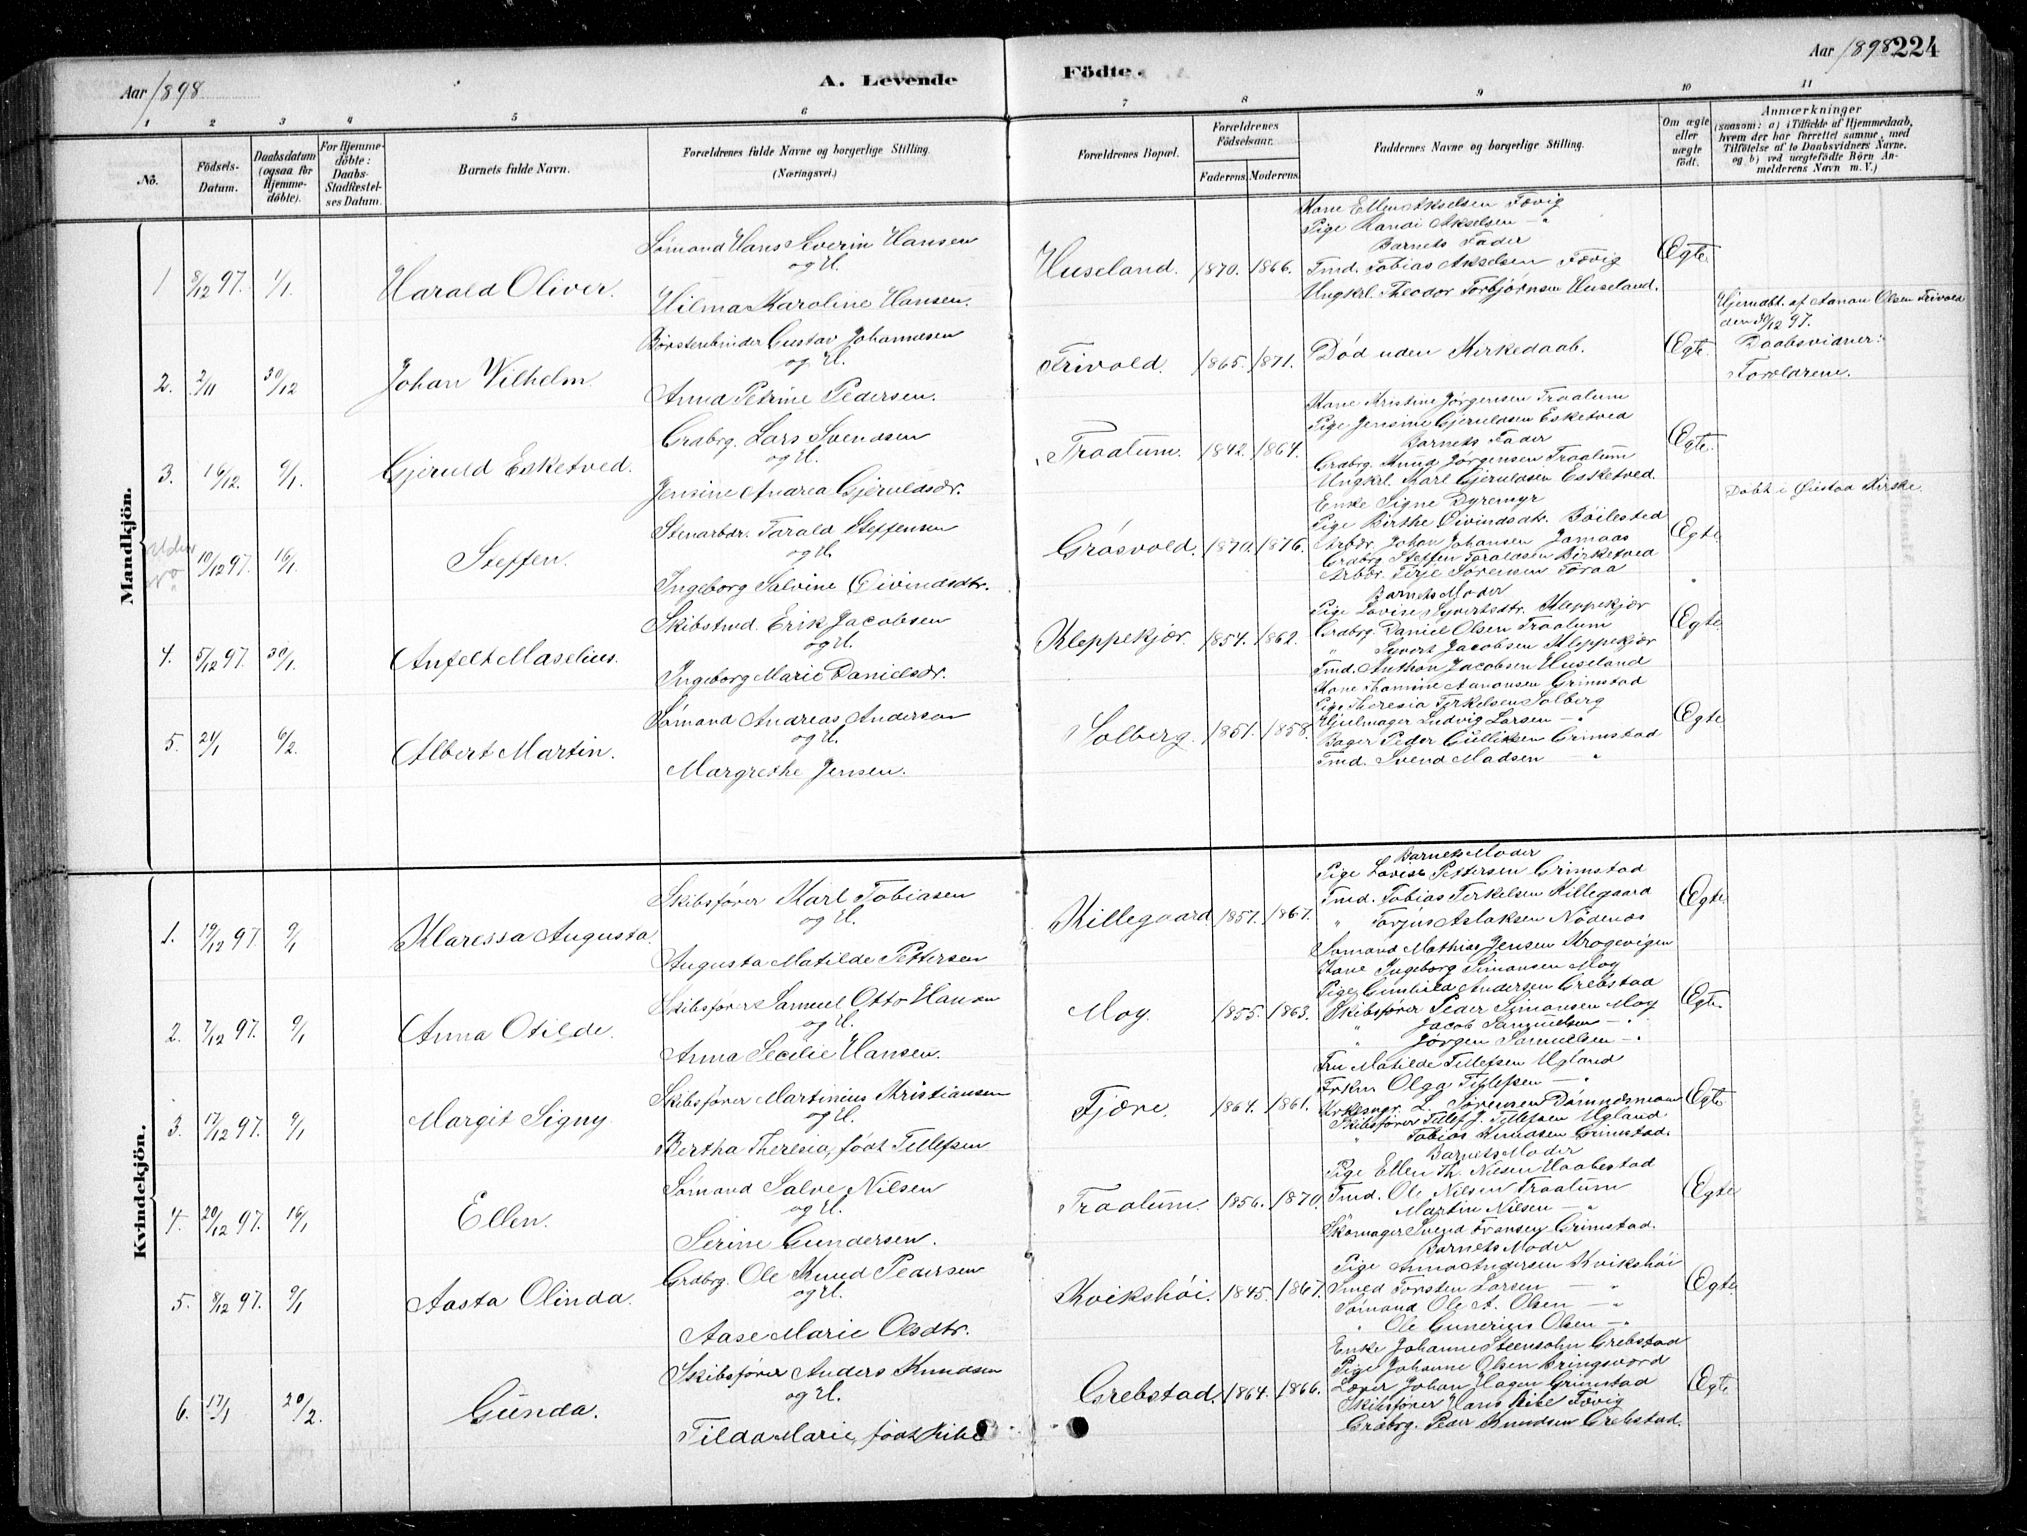 Aar 1898
A. Levende
Födte.
Aar 1898
224
1 2 3 4 5 6 7 8 9 10 11
No.
Födsels-Datum.
Daabsdatum (ogsaa for Hjemme-döbte).
For Hjemme-döbte: Daabs-Stadfæstel-ses Datum.
Barnets fulde Navn.
Forældrenes fulde Navne og borgerlige Stilling. (Næringsvei.)
Forældrenes Bopæl.
Forældrenes Födselsaar.
Faderens. Moderens.
Faddernes Navne og borgerlige Stilling.
Om ægte eller uægte födt.
Anmærkninger (saasom: a) i Tilfælde af Hjemmedaab, hvem der har forrettet samme, med Tilföielse af to Daabsvidners Navne. og b) ved uægtefödte Börn An-melderens Navn m. V.)
Mandkjön.
1 8/12 97. 1/1. Harald Oliver.
Sömand Hans Severin Hansen
og H.
Hilma Karoline Hansen.
Huseland. 1870. 1866.
Kone Ellen Akselsen Fævig
Pige Randi Akselsen — "
Barnets Fader
Tmd. Tobias Akselsen Fævig
Ungkrl. Theodor Torbjørnsen Huseland.
Egte.
2. 2/11 30/12 Johan Wilhelm.
Børstenbinder Gustav Johannesen
og H.
Anna Petrine Pedersen.
Frivold. 1865. 1871.
Død uden Kirkedaab.
Egte.
Hjemdbt. af Aanon Olsen Frivold
den 30/12 97.
Daabsvidner:
Forældrene.
3. 16/12. 9/1. Gjeruld Esketved.
Grdbrg. Lars Svendsen
og H.
Jensine Andrea Gjeruldsdr.
Traalum. 1842. 1864.
Kone Kristine Jørgensen Traalum
Pige Jensine Gjeruldsen Esketved
Barnets Fader
Grdbrg. Knud Jørgensen Traalum
Ungkrl. Karl Gjeruldsen Esketved.
Egte.
10/12 97. 16/1. Steffen.
Stenarbdr. Tarald Steffensen
og H.
Ingeborg Salvine Øivindsdtr.
Grøsvold. 1870. 1876.
Enke Signe Dyremyr
Pige Birthe Øivindsdtr. Bøilestad
Arbdr. Johan Johansen Jamaas
Grdbrg Steffen Taraldsen Birketved
Arbdr. Terje Sørensen Toraa
Egte
Døbt i Øiestad Kirke.
4. 5/12 97. 30/1. Anfelt Maselius.
Skibstmd. Erik Jacobsen
og H.
Ingeborg Marie Danielsdr.
Kleppekjær. 1854. 1862.
Barnets Moder
Pige Lovise Syvertsdtr. Kleppekjær
Grdbrg. Daniel Olsen Traalum
" Syvert Jacobsen Kleppekjær
Tmd. Anthon Jacobsen Huseland
Egte.
5. 21/1 6/2. Albert Martin.
Sömand Andreas Anderson
og H.
Margrethe Jensen.
Solberg. 1851. 1858.
Kone Thomine Aanonsen Grimstad
Pige Theresia Terkelsen Solberg
Hjulmager Ludvig Larsen — "
Bager Peder Gulliksen Grimstad
Tmd. Svend Madsen — "
Egte
Kvindekjön.
1. 19/12 97. 9/1 Klaressa Augusta.
Skibsfører Karl Tobiasen
og H.
Augusta Matilde Pettersen
Killegaard. 1857. 1867.
Barnets Moder
Pige Lovise Pettersen Grimstad
Tmd. Tobias Terkelsen Killegaard
" Torjus Aslaksen Nødenæs
Sømand Mathias Jensen Krogevigen
Egte.
2. 7/12 97. 9/1 Anna Otilde.
Skibsfører Samuel Otto Hansen
og H.
Anna Secilie Hansen.
Moy. 1855. 1863.
Kone Ingeborg Simonsen Moy
Pige Gunhild Andersen Grebstad
Skibsfører Peder Simonsen Moy
" Jacob Samuelsen — "
" Jørgen Samuelsen — "
Egte.
3. 17/12 97. 9/1 Margit Signy
Skibsfører Martinius Kristiansen
og H.
Bertha Theresia, født Tellefsen
Fjære. 1864. 1861.
Fru Matilde Tellefsen Ugland
Frkn. Olga Tellefsen — "
Kirkesngr. L. Sørensen Dömmesmoen
Skibsfører Tellef J. Tellefsen Ugland
" Tobias Knudsen Grimstad.
Egte
4. 20/12 97. 16/1 Ellen.
Sømand Salve Nilsen
og H.
Serine Gundersen.
Traalum. 1856. 1870.
Barnets Moder
Pige Ellen Th. Niesen Haabestad
Tmd. Ole Nilsen Traalum
Martin Nilsen — "
Skomager Svend Fransen Grimstad.
Egte
5. 8/12 97. 9/1 Aasta Olinda.
Grdbrg. Ole Knud Pedersen
og H.
Aase Marie Olsdtr.
Kvikshøi. 1845. 1867.
Barnets Moder
Pige Anna Andersen Kvikshøi
Smed Torsten Larsen — "
Sømand Ole A. Olsen — "
" Ole Gunerius Olsen — "
Egte
6. 17/1 20/2. Gunda.
Skibsfører Anders Knudsen
og H.
Tilda Marie, født Kibe
Grebstad. 1864. 1866.
Enke Johanne Steensohn Grebstad
Pige Johanne Olsen Bringsværd
Lærer Johan Hagen Grimstad
Skibsfører Hans Kibe Fævig
Grdbrg. Peder Knudsen Grebstad.
Egte.